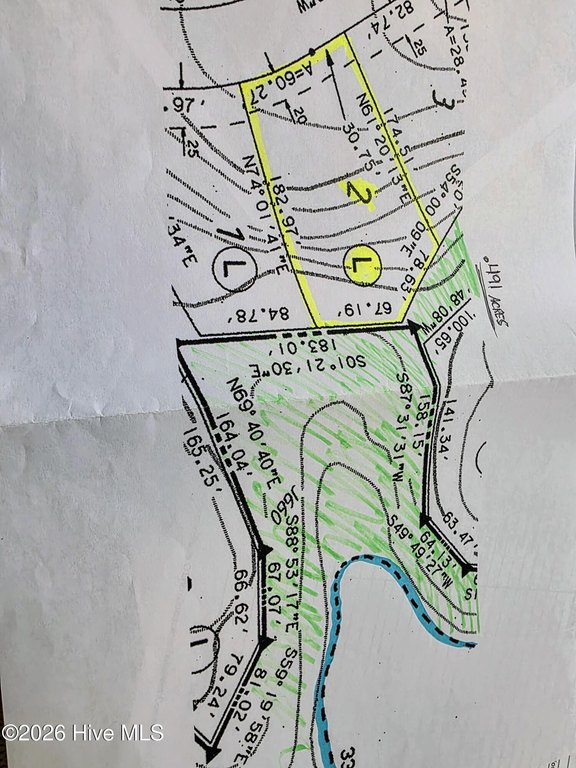 82.74
25
A=28.4
3
A=60.27
20
.92'
25
30.75
N61°20'13"E
174.51
S54°00'09"E
78.63'
2
L
N74°01'41"E
182.97'
67.19'
1
L
84.78'
'34"E
.491 ACRES
48.08"W
100.65'
183.01'
S01°21'30"E
S87°31'31"W
158.15
141.34'
N69°40'40"E
164.04'
165.25'
S49°49'27"W
64.13'
63.47'
S88°53'17"E
67.07'
66.62'
S59°19'58"E
81.02'
79.24'
33
©2026 Hive MLS